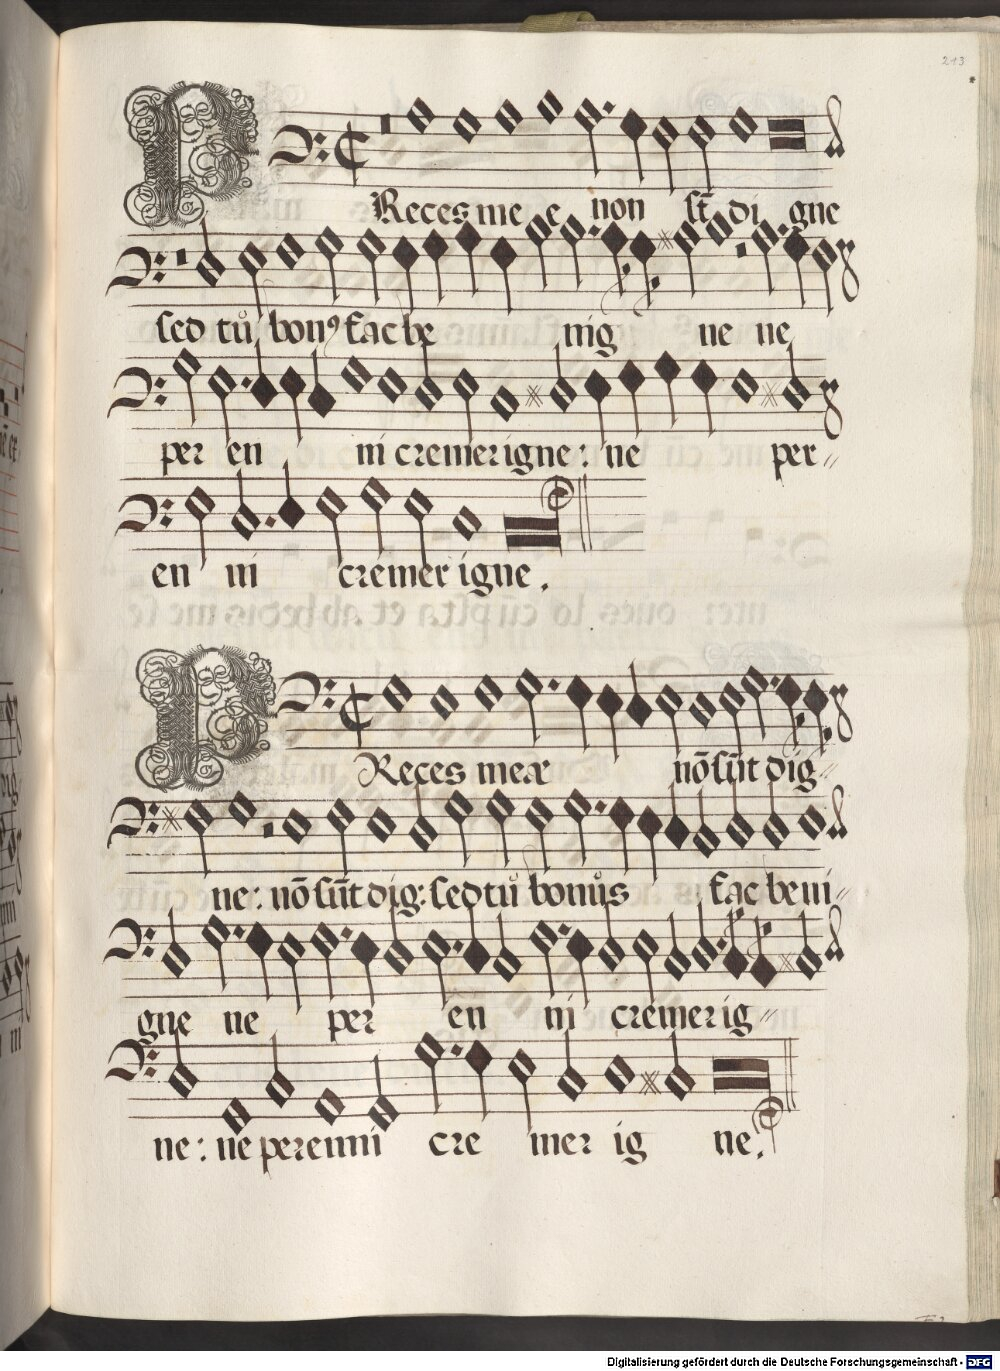 213
PReces me e non sūt di gne
sed tů bonꝰ fac be nig ne ne
per en ni cremer igne: ne per
en ni cremer igne.
PReces meæ nō sūt dig
ne: nō sūt dig: sed tů bonůs fac beni
gne ne per en ni cremer ig
ne: ne perenni cre mer ig ne.
Digitalisierung gefördert durch die Deutsche Forschungsgemeinschaft - DFG